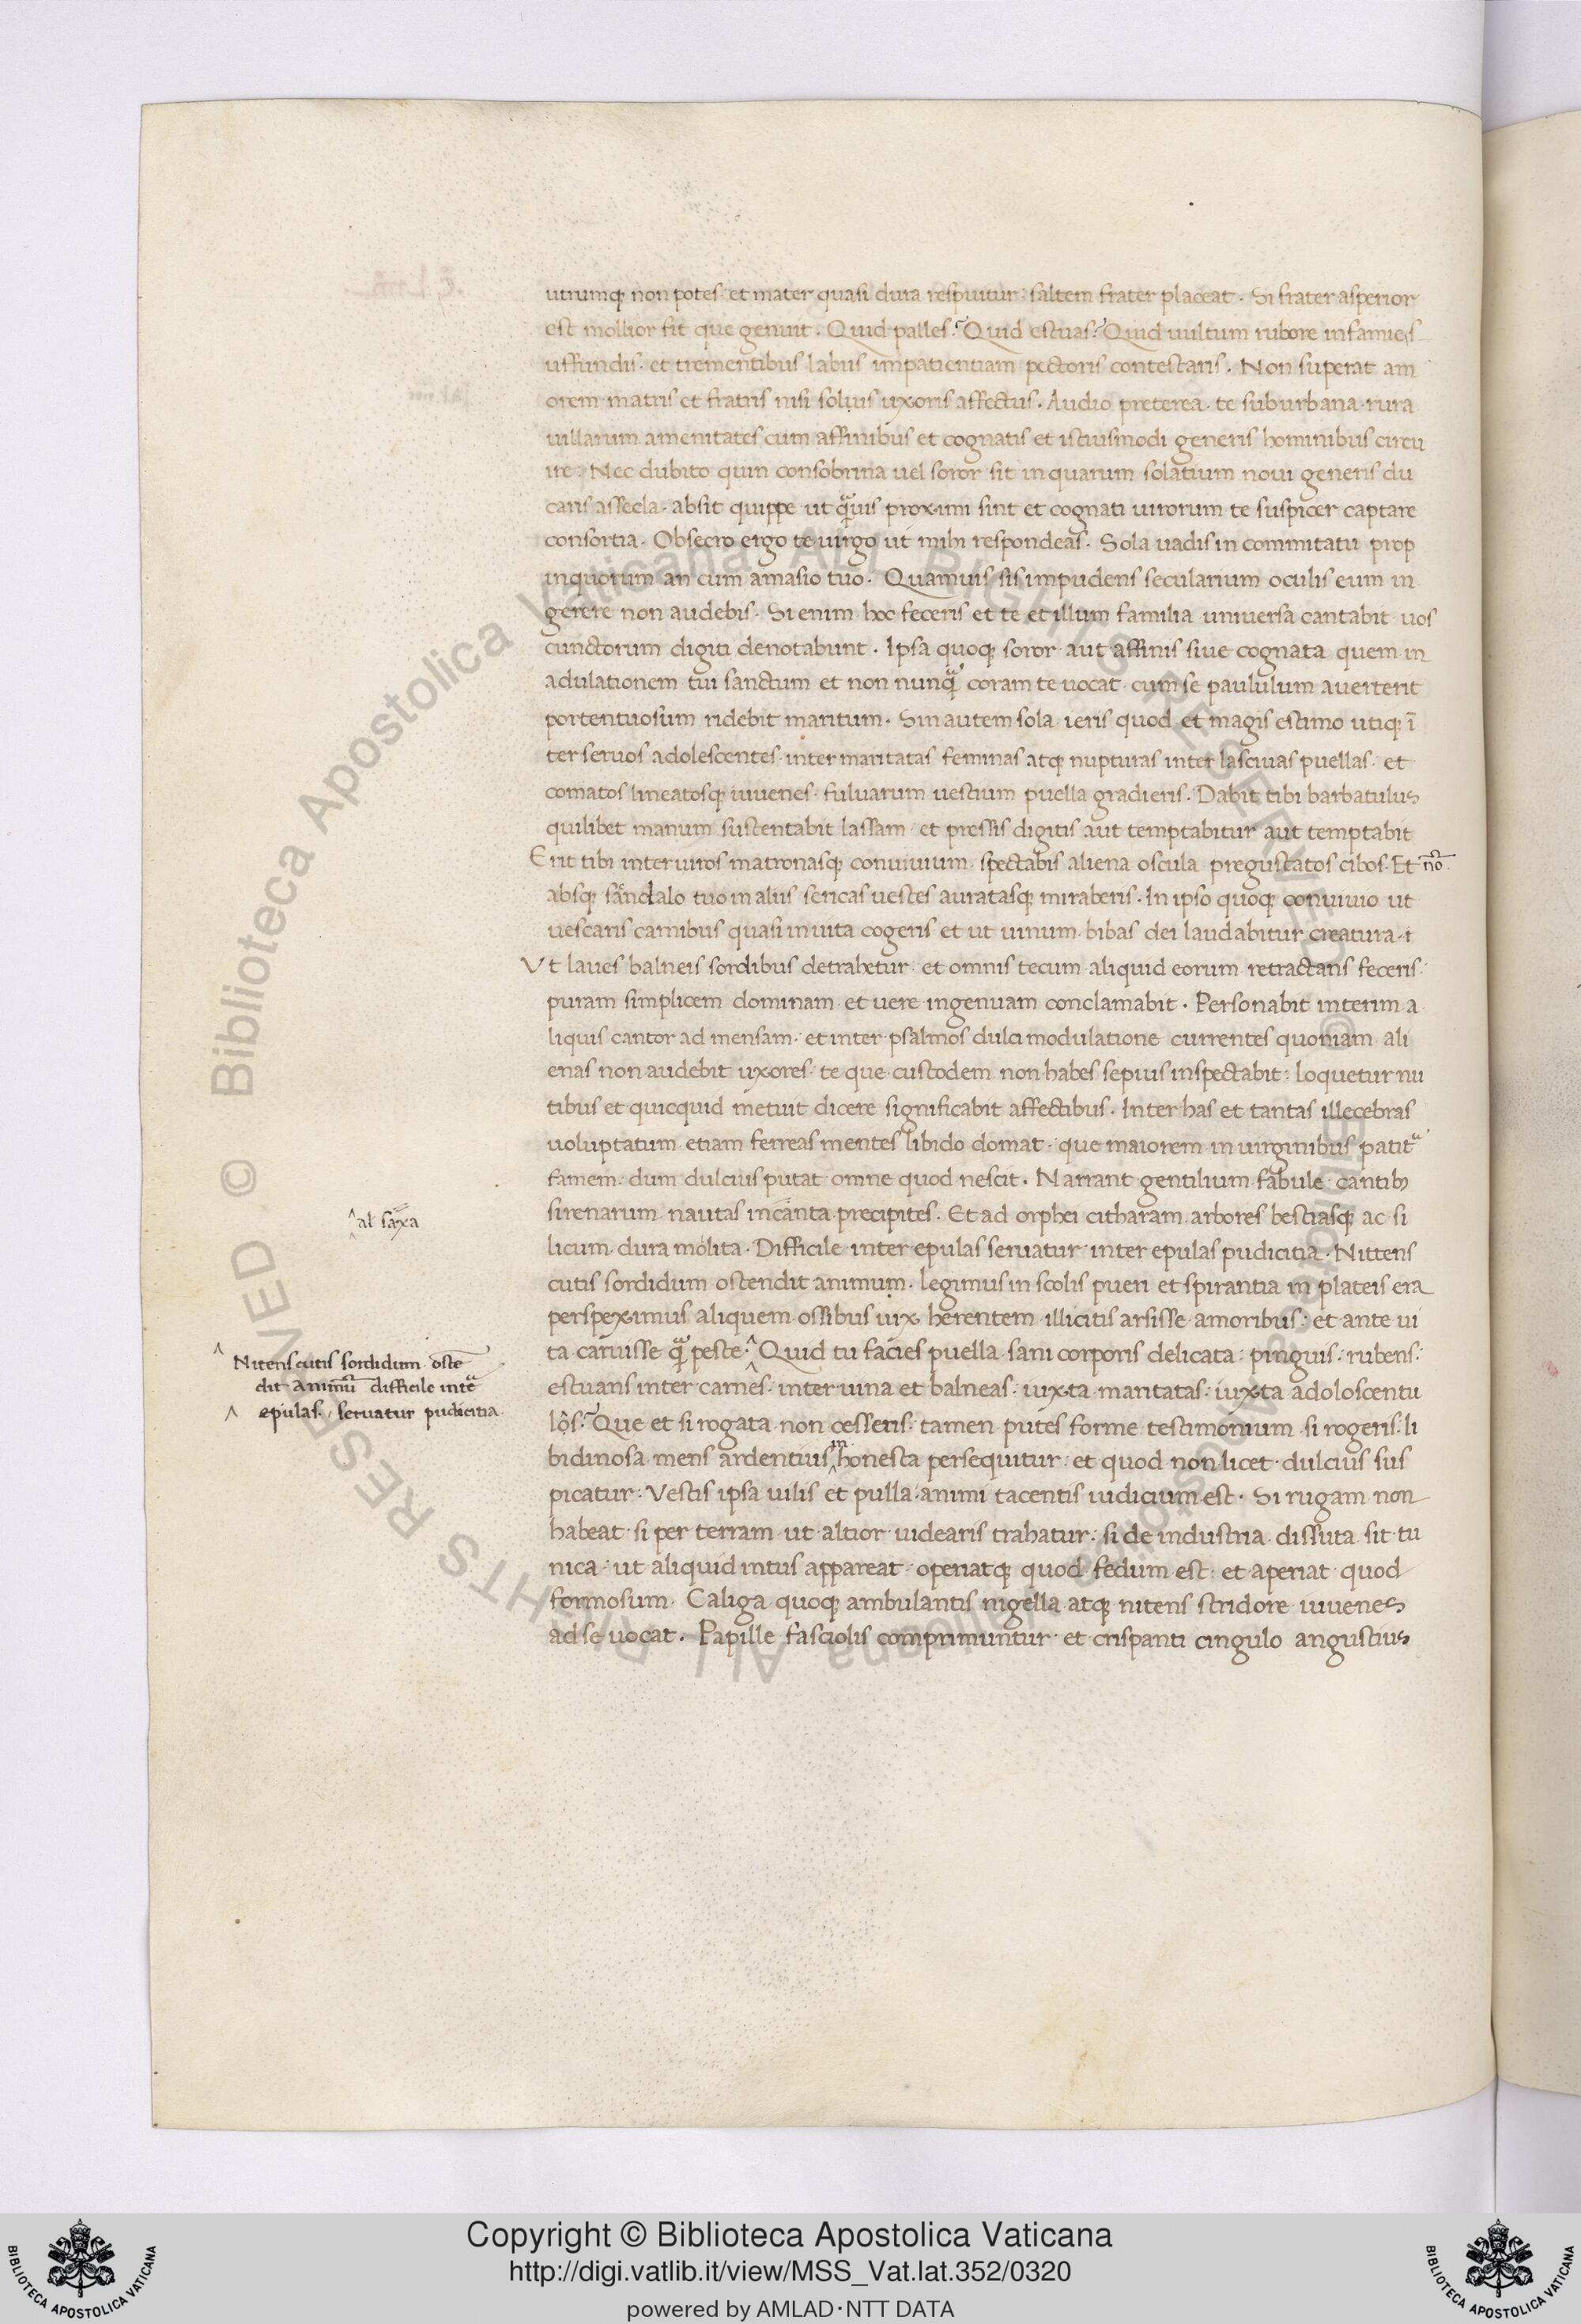 utrumq; non potes· et mater quasi dura respuitur: saltem frater placeat. Si frater asperior
est mollior sit que genuit. Quid palles? Quid estuas? Quid uultum rubore infamie s
uffundis· et trementibus labiis impatientiam pectoris contestaris. Non superat am
orem matris et fratris nisi solius uxoris affectus. Audio preterea· te suburbana rura
uillarum amenitates cum affinibus et cognatis et istiusmodi generis hominibus circu
ire. Nec dubito quin consobrina uel soror sit in quarum solatium noui generis du
caris assecla· absit quippe ut q̃uis proximi sint et cognati uirorum te suspicer captare
consortia. Obsecro ergo te uirgo ut mihi respondeas. Sola uadis in commitatu prop
inquorum an cum amasio tuo. Quamuis sis impudens secularium oculis eum in
gerere non audebis. Si enim hoc feceris et te et illum familia uniuersa cantabit uos
cunctorum digiti denotabunt. Ipsa quoq; soror aut affinis siue cognata quem in
adulationem tui sanctum et non nunq̃ coram te uocat cum se paululum auerterit
portentuosum ridebit maritum. Sin autem sola ieris quod et magis estimo utiq; ī
ter seruos adolescentes· inter maritatas feminas atq; nupturas inter lasciuas puellas· et
comatos lineatosq; iuuenes· fuluarum uestium puella gradieris. Dabit tibi barbatulus
quilibet manum sustentabit lassam et pressis digitis aut temptabitur aut temptabit
Erit tibi inter uiros matronasq; conuiuium· spectabis aliena oscula pregustatos cibos. Et nō
absq; sandalo tuo in aliis sericas uestes auratasq; miraberis. In ipso quoq; conuiuio ut
uescaris carnibus quasi inuita cogeris et ut uinum bibas dei laudabitur creatura·
Vt laues balneis sordibus detrahetur· et omnis tecum aliquid eorum retractans feceris:
puram simplicem dominam et uere ingenuam conclamabit. Personabit interim a
liquis cantor ad mensam· et inter psalmos dulci modulatione currentes quoniam ali
enas non audebit uxores· te que custodem non habes sepius inspectabit: loquetur nu
tibus et quicquid metuit dicere significabit affectibus. Inter has et tantas illecebras
uoluptatum etiam ferreas mentes libido domat· que maiorem in uirginibus patit᷑
famem· dum dulcius putat omne quod nescit. Narrant gentilium fabule cantib;
^al saxa
sirenarum nautas incanta precipites. Et ad orphei citharam arbores bestiasq; ac si
licum dura molita. Difficile inter epulas seruatur inter epulas pudicitia. Nittens
cutis sordidum ostendit animum. legimus in scolis pueri et spirantia in plateis era
perspeximus aliquem ossibus uix herentem illicitis arsisse amoribus: et ante ui
ta caruisse q̃ peste.^ Quid tu facies puella sani corporis delicata: pinguis: rubens:
^ Nitens cutis sordidum oste
dit animū difficile inter
^ epulas seruatur pudicitia
estuans inter carnes: inter uina et balneas: iuxta maritatas: iuxta adoloscentu
los? Que et si rogata non cesseris: tamen putes forme testimonium si rogeris· li
bidinosa mens ardentius ^in honesta persequitur: et quod non licet dulcius sus
picatur: Vestis ipsa uilis et pulla animi tacentis iudicium est. Si rugam non
habeat si per terram ut altior uidearis trahatur: si de industria dissuta sit tu
nica: ut aliquid intus appareat· operiatq; quod fedum est· et aperiat quod
formosum. Caliga quoq; ambulantis nigella atq; nitens stridore iuuenes
ad se uocat. Papille fasciolis comprimuntur et crispanti cingulo angustius
Copyright © Biblioteca Apostolica Vaticana
http://digi.vatlib.it/view/MSS_Vat.lat.352/0320
powered by AMLAD·NTT DATA